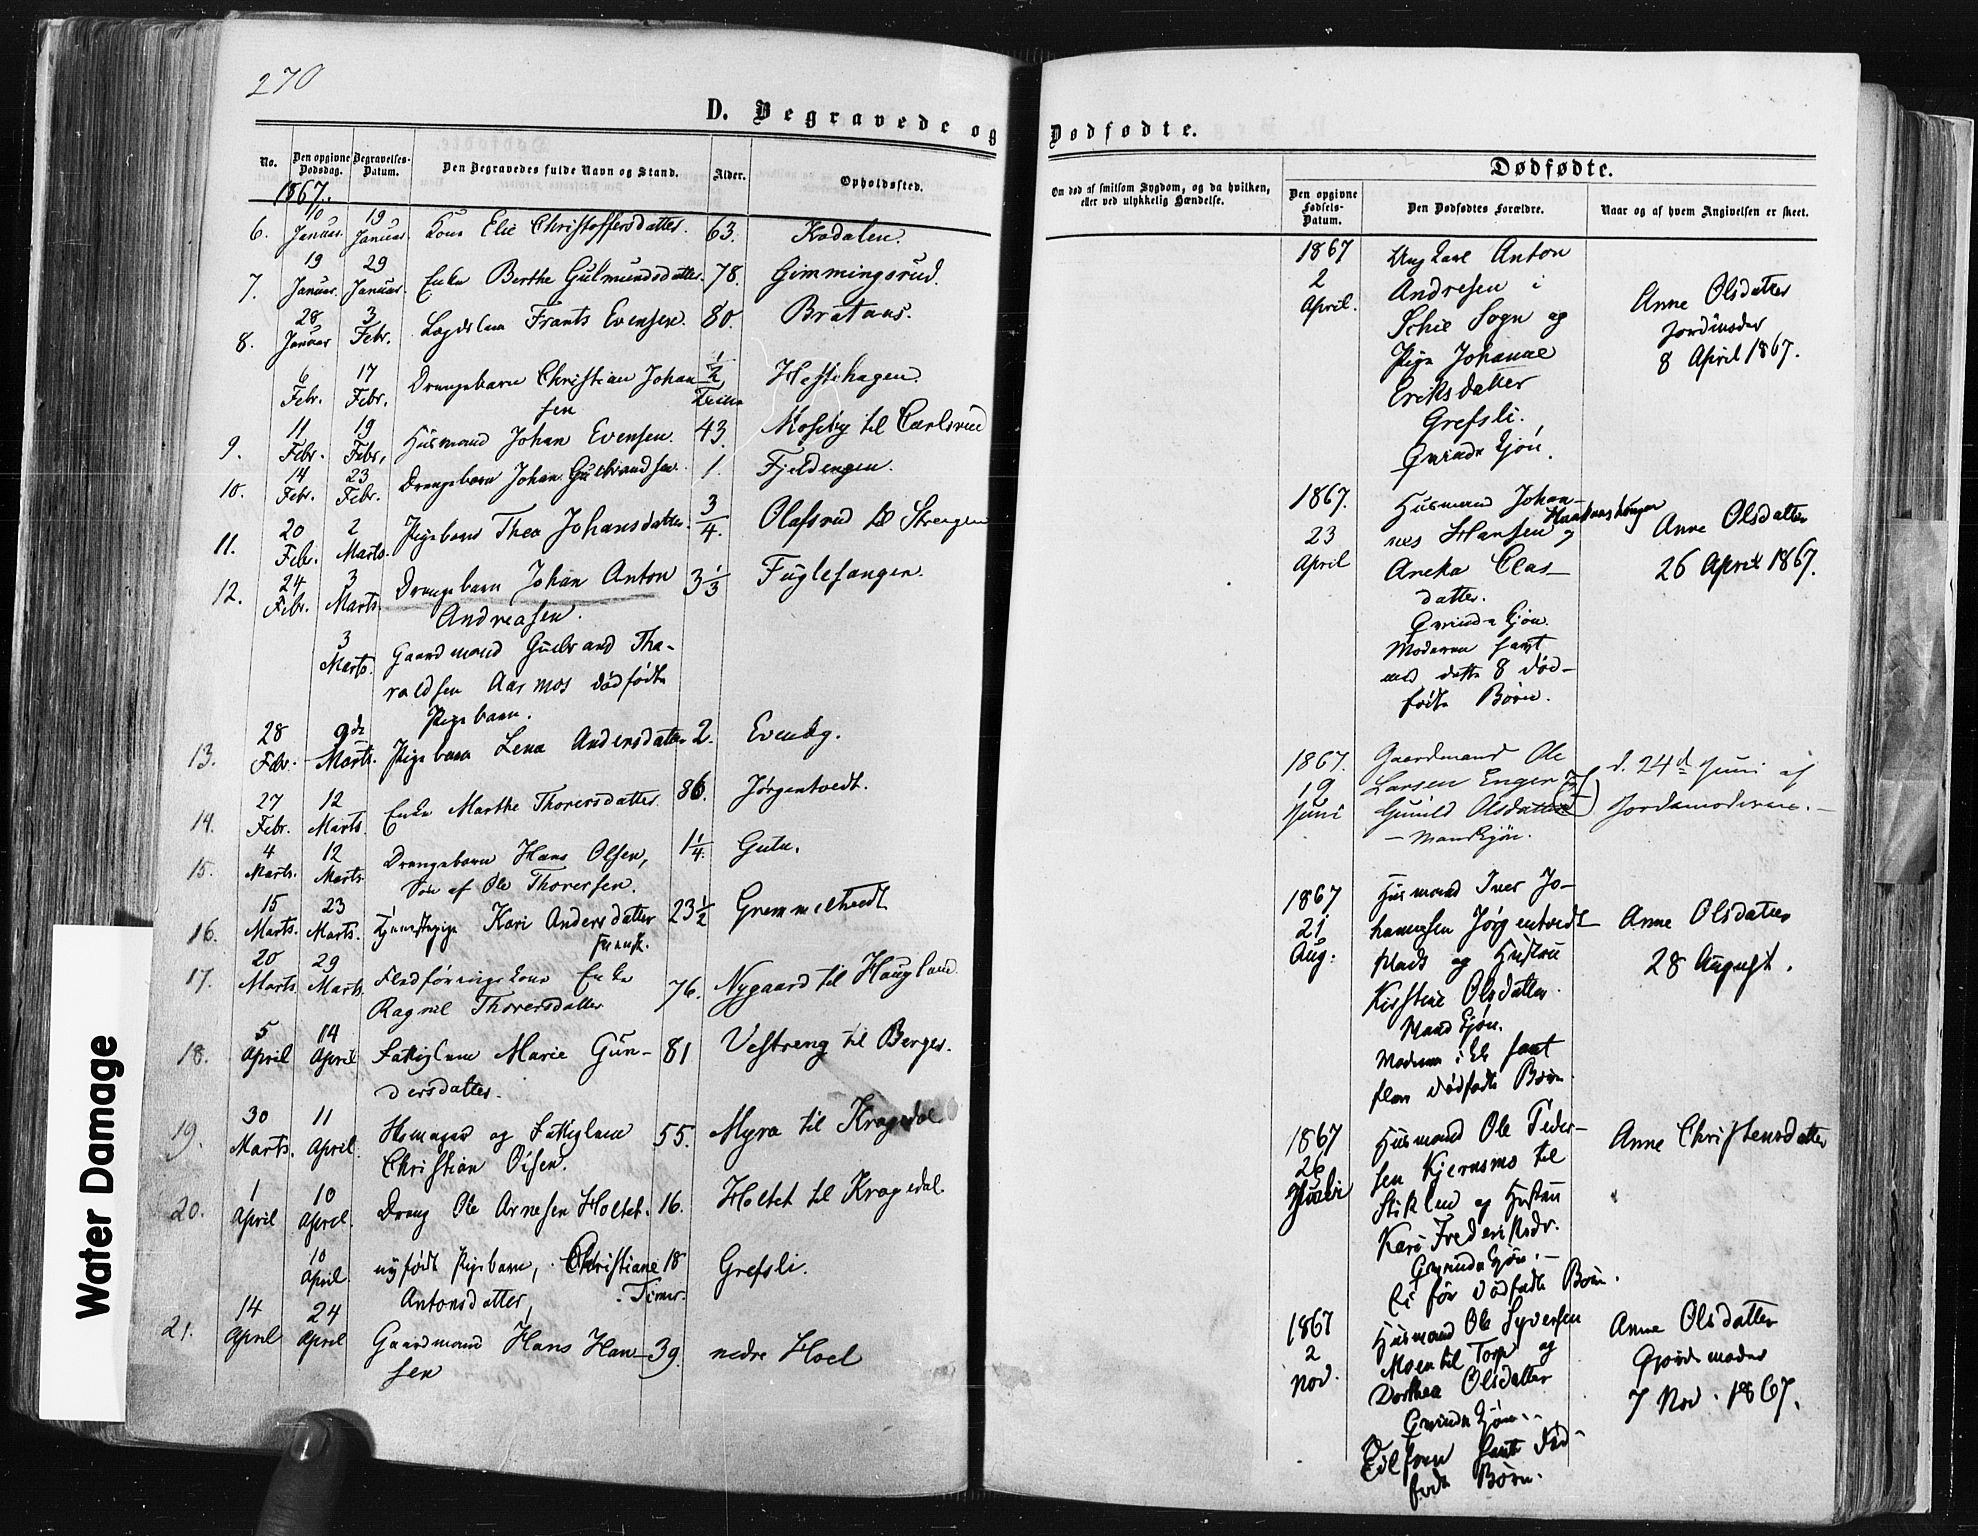 270
D. Begravede og
No.
Den opgivne Dødsdag.
Begravelses-Datum.
Den Begravedes fulde Navn og Stand.
Alder.
Opholdssted.
1867.
6. 10 Januar. 19 Januar. Kone Elie Christoffersdatter. 63. Kadalen.
7. 19 Januar. 29 Januar. Enke Berthe Gulmundsdatter 78. Gimmingsrud.
8. 28 Januar 3 Febr. Lægdslem Frants Evensen. 80. Brataas.
6 Febr. 17 Febr. Drengebarn Christian Johan ½ Time Hestehagen.
sen
9. 11 Febr. 19 Febr. Husmand Johan Evensen. 43. Moseby til Carlsrud
10. 14 Febr. 23 Febr. Drengebarn Johan Gulbrandsen. 1. Fjeldengen.
11. 20 Febr. 2 Marts. Pigebarn Thea Johansdatter. 3/4. Olafsrud til Strengen
12. 24 Febr. 3 Marts. Drengebarn Johan Anton 3 1/3 Fuglesangen.
Andreasen.
3 Marts. Gaardmand Gulbrand Tha-
raldsen Aasmos dødfødte
Pigebarn.
13. 28 Febr. 9de Marts. Pigebarn Lena Andersdatter 2. Evenby.
14. 27 Febr. 12 Marts. Enke Marthe Thorersdatter. 86. Jørgentvedt.
15. 4 Marts. 12 Marts. Drengebarn Hans Olsen, 1¼. Gutu.
Søn af Ole Thorersen.
16. 15 Marts. 23 Marts. Tjenestepige Kari Andersdatter 23½ Gremmeltvedt
svensk.
17. 20 Marts. 29 Marts. Flodføringskone Enke
Ragnil Thorersdatter 76. Nygaard til Haugland
18. 5 April 14 April Fattiglem Marie Gun- 81 Vestreng til Berger.
dersdatter.
19. 30 Marts. 11 April. og Fattiglem 55. Myra til Kragedal
Christian Olsen.
20. 1 April 10 April. Dreng Ole Arnesen Holtet. 16. Holtet til Kragedal
10 April. nyfødt Pigebarn, Christiane 18 Grefsli.
Antonsdatter, Timer.
21. 14 April 24 April Gaardmand Hans Han- 39. nedre Hoel
sen
Dødfødte.
Om død af smitsom Sygdom, og da hvilken,
eller ved ulykkelig Hændelse.
Dødfødte.
Den opgivne Fødsels-Datum.
Den Dødfødtes Forældre.
Naar og af hvem Angivelsen er skeet.
1867 2 April. Ungkarl Anton
Andresen i
Schie Sogn og
Pige Johanne
Eriksdatter
Grefsli.
Qvindekjøn.
Anne Olsdatter
Jordmoder
8 April 1867.
1867. 23 April Husmand Johan-
nes Hansen Haakaashaugen og
Aneka Clas-
datter.
Qvindekjøn.
Moderen havt
med dette 8 død-
fødte Børn.
Anne Olsdatter
26 April 1867.
1867. 19 Juni Gaardmand Ole
Larsen Enger
Gunild Olsdatter
- Mandkjøn.
d. 24d Juni af
Jordemoderen. -
1867 21 Aug: Husmand Iver Jo-
hannesen Jørgentvedt-
Plads og Hustru
Kirstine Olsdatter.
Mandkjøn.
Moderen ikke havt
flere dødfødte Børn.
Anne Olsdatter
28 August.
1867 26 Husmand Ole Peder-
sen Kjernsmo til
Stiklen og Hustru
Kari Frederiksdr.
Qvindekjøn. -
Ei før dødfødte Børn.
Anne Christensdatter
1867 2 Nov. Husmand Ole Syversen
Moen til Torp og
Dorthea Olsdatter
Qvindekjøn. -
Ei flere havt død-
fødte Børn.
Anne Olsdatter
Gjordemoder
7 Nov. 1867.
Water Damage